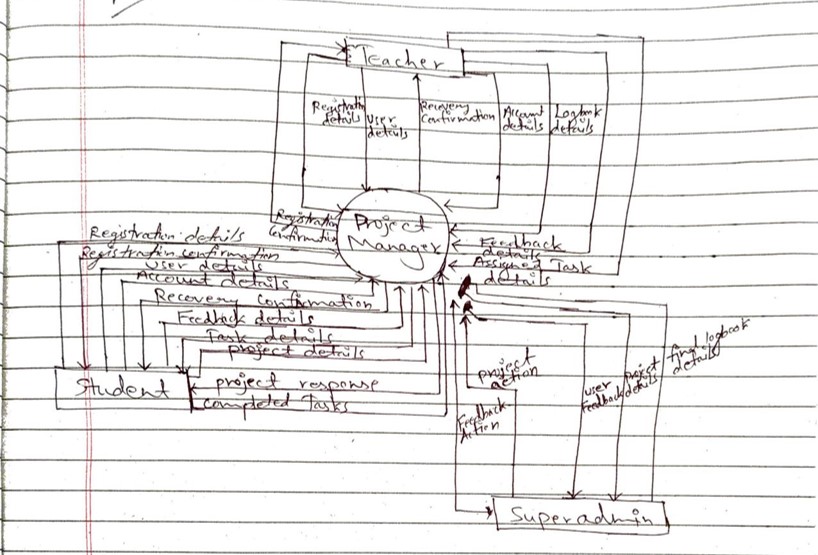 Teacher
Registration details
User details
Recovery Confirmation
Account details
Logbook details
Project Manager
Registration Confirmation
Feedback details
Assigned Task details
Registration details
Registration confirmation
User details
Account details
Recovery confirmation
Feedback details
Task details
project details
Student
project response
completed Tasks
project action
Feedback Action
user Feedback
project details
final logbook details
Superadmin